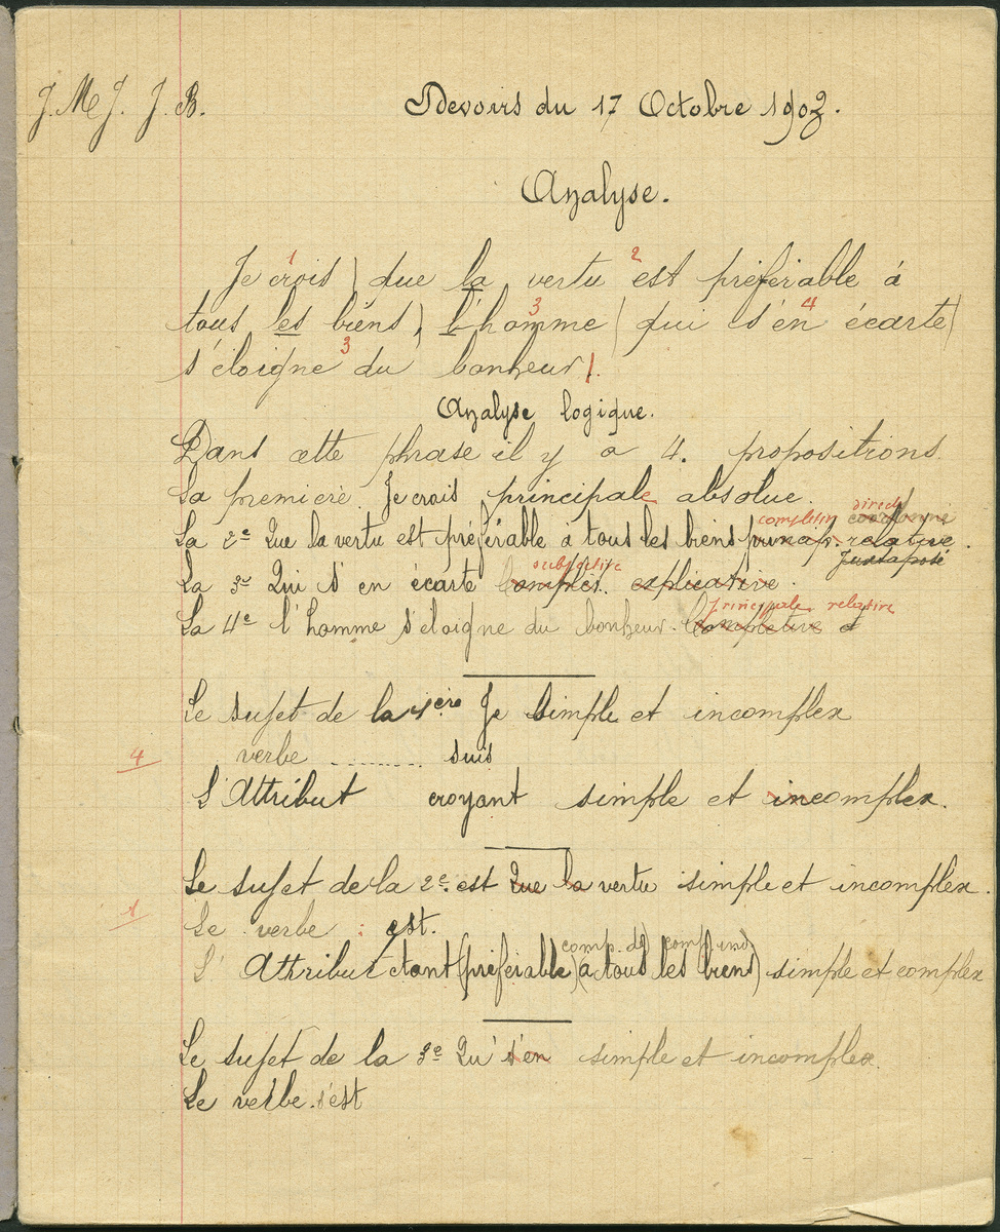 J. M. J. J. B.
Devoirs du 17 Octobre 1903.
Analyse.
1 2
Je crois ) que la vertu est préférable à
3 4
tous les biens ) l'homme ( qui s'en écarte )
3
s'éloigne du bonheur ).
Analyse logique.
Dans cette phrase il y a 4. propositions.
La première. Je crois principale absolue.
complétive directe
La 2e Que la vertu est préférable à tous les biens princip. relative.
Juxtaposé
subjective
La 3e Qui s'en écarte complét. explicative.
Principale relative
La 4e l'homme s'éloigne du bonheur. Complétive d
Le sujet de la 1ère Je simple et incomplex
4 verbe ......... suis
L'Attribut croyant simple et incomplex.
Le sujet de la 2e. est Que la vertu simple et incomplex.
1 Le verbe : est.
comp. de) comp. ind)
L'Attribut étant (préférable) (à tous les biens) simple et complex
Le sujet de la 3e Qu' s'en simple et incomplex.
Le verbe. s'est